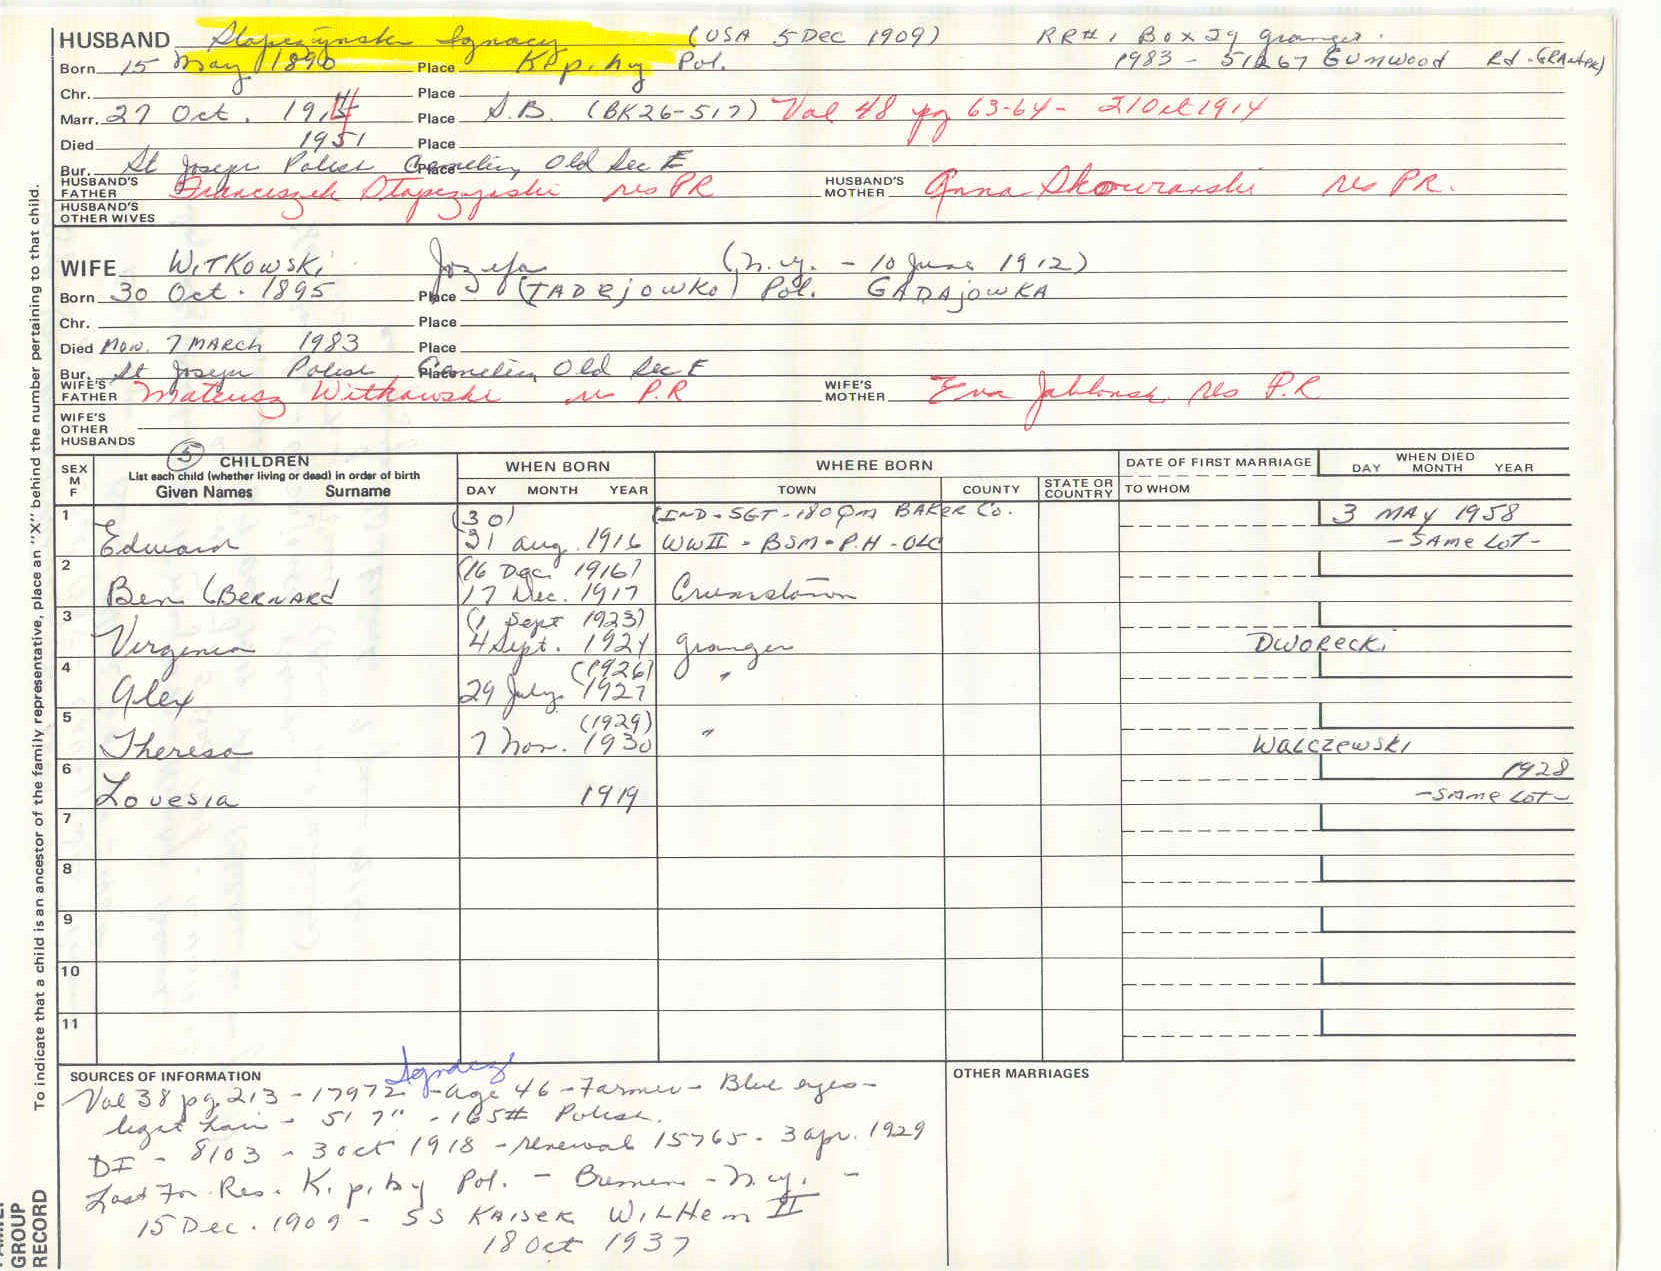 HUSBAND Stapczynski Ignacy (USA 5 Dec 1909) RR#1 Box 29 Granger.
Born 15 May 1890 Place Pol. 1983 - 51267 Gumwood Rd - Granger)
Chr. Place
Marr. 27 Oct. 1914 Place S.B. (BK26-517) Vol 48 pg 63-64 - 21 Oct 1914
Died 1951 Place
Bur. St Joseph Polish Cemetery Old Sec E Place
HUSBAND'S FATHER Franciszek Stapczynski res PR HUSBAND'S MOTHER Anna Skowranski res PR.
HUSBAND'S OTHER WIVES
WIFE WITKOWSKI Jozefa (N.Y. - 10 June 1912)
Born 30 Oct. 1895 Place (TADEJOWKO) Pol. GADAJOWKA
Chr. Place
Died Mon. 7 MARCH 1983 Place
Bur. St Joseph Polish Cemetery Old Sec E Place
WIFE'S FATHER Mateusz Witkowski res P.R WIFE'S MOTHER Eva Jablonski res P.R
WIFE'S OTHER HUSBANDS
SEX M F (5) CHILDREN List each child (whether living or dead) in order of birth Given Names Surname WHEN BORN DAY MONTH YEAR WHERE BORN TOWN COUNTY STATE OR COUNTRY DATE OF FIRST MARRIAGE TO WHOM WHEN DIED DAY MONTH YEAR
1 (30) (IND - SGT - 180 QM BAKER Co. 3 MAY 1958
Edward 31 Aug. 1916 WWII - BSM - P.H - OLC - SAME LOT -
2 (16 Dec 1916)
Ben (BERNARD 17 Dec. 1917 Crumstown
3 (1 Sept 1923)
Virginia 4 Sept. 1924 Granger DWORECKI
4 (1926) "
Alex 29 July 1927
5 (1929) "
Theresa 7 Nov. 1930 WALCZEWSKI
6 1928
Lovesia 1919 - SAME LOT -
7
8
9
10
11
SOURCES OF INFORMATION OTHER MARRIAGES
Vol 38 pg. 213 - 17972 - Age 46 - Farmer - Blue eyes -
light hair - 5' 7" - 165# Polish.
DI - 8103 - 3 Oct 1918 - renewal 15765 - 3 Apr. 1929
Last For. Res. Pol. - Bremen - N.Y. -
15 Dec. 1909 - SS KAISER WILHEM II
18 Oct 1937
To indicate that a child is an ancestor of the family representative, place an "X" behind the number pertaining to that child.
FAMILY GROUP RECORD